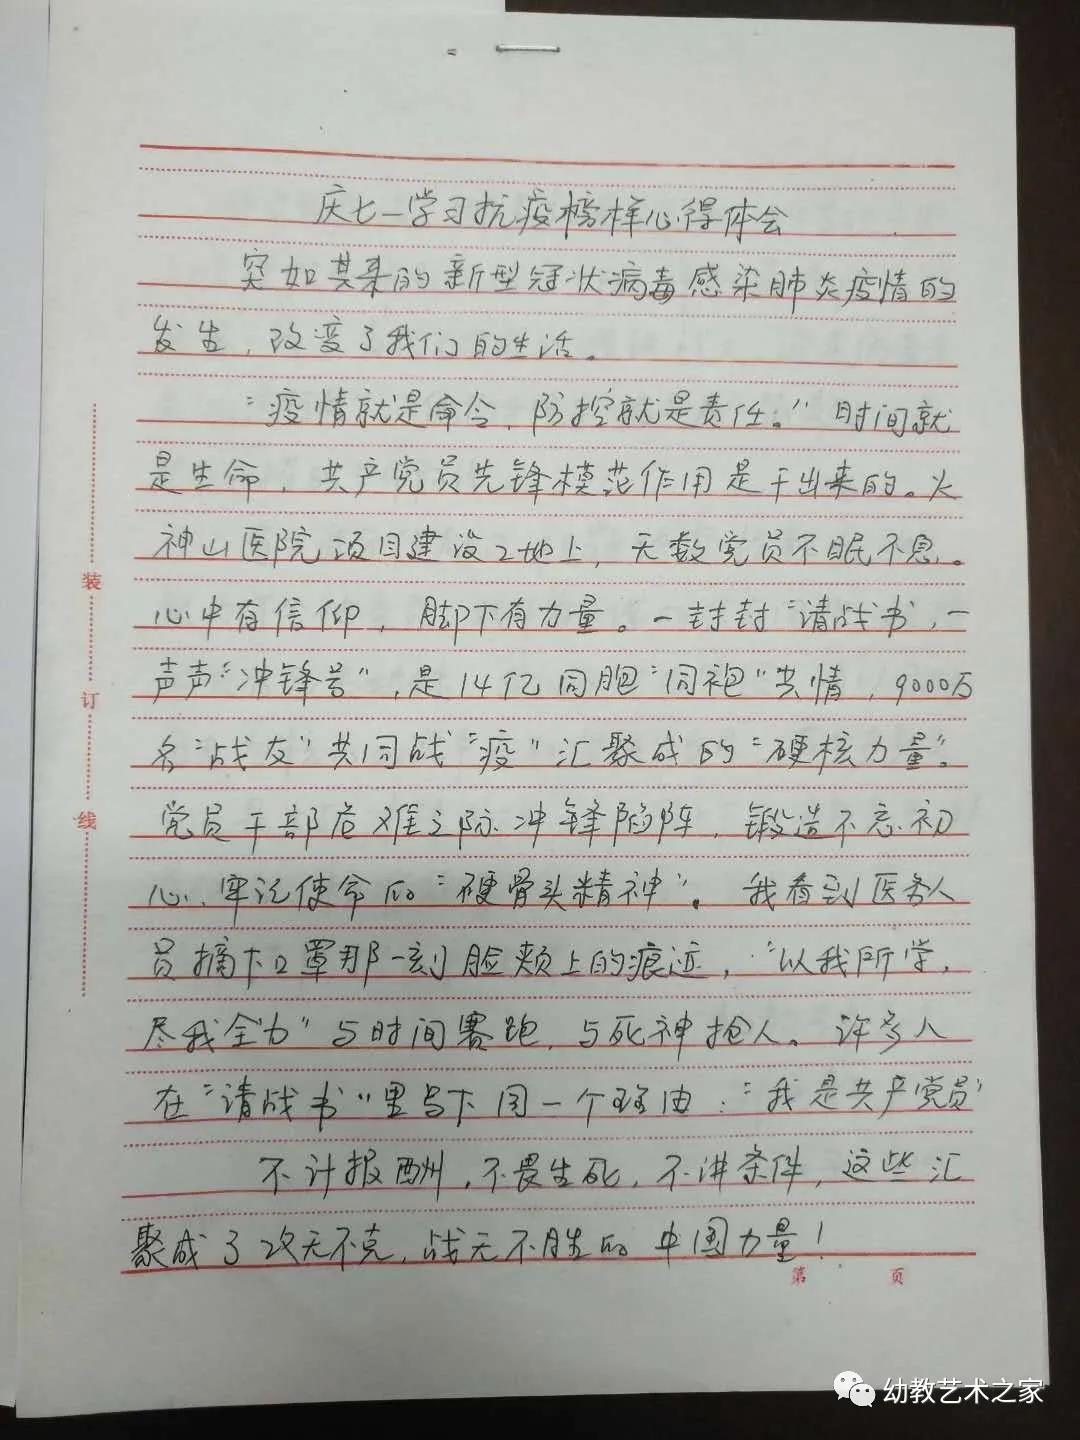 庆七一学习抗疫榜样心得体会
突如其来的新型冠状病毒感染肺炎疫情的
发生，改变了我们的生活。
“疫情就是命令，防控就是责任。”时间就
是生命，共产党员先锋模范作用是干出来的。火
神山医院项目建设工地上，无数党员不眠不息。
心中有信仰，脚下有力量。一封封“请战书，一
声声“冲锋号”，是14亿同胞“同袍”共情，9000万
名“战友”共同战“疫”汇聚成的“硬核力量”。
党员干部危难之际冲锋陷阵，锻造不忘初
心、牢记使命的“硬骨头精神”。我看到医务人
员摘下口罩那一刻脸颊上的痕迹，“以我所学，
尽我全力”与时间赛跑，与死神抢人。许多人
在“请战书”里写下同一个理由：“我是共产党员”
不计报酬，不畏生死，不讲条件，这些汇
聚成了攻无不克，战无不胜的中国力量！
装订线
第 页
幼教艺术之家